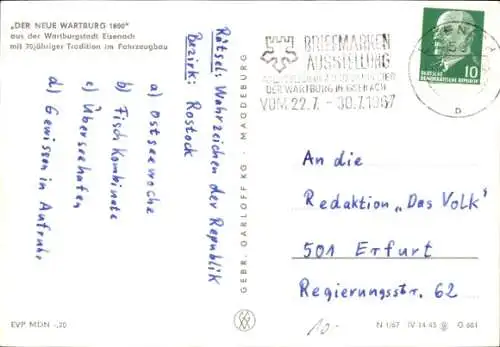 „DER NEUE WARTBURG 1600"
aus der Wartburgstadt Eisenach
mit 70jähriger Tradition im Fahrzeugbau
Rätsel: Wahrzeichen der Republik
Bezirk: Rostock
a) Ostseewoche
b) Fischkombinate
c) Überseehafen
d) Gewissen in Aufruhr
EVP MDN -,20
GEBR. GARLOFF KG · MAGDEBURG
BRIEFMARKEN
AUSSTELLUNG
DER WARTBURG IN EISENACH
VOM 22.7. - 30.7.1967
DEUTSCHE
DEMOKRATISCHE REPUBLIK
10
An die
Redaktion „Das Volk"
501 Erfurt
Regierungsstr. 62
10.-
N 1/67 IV-14-45 G 661